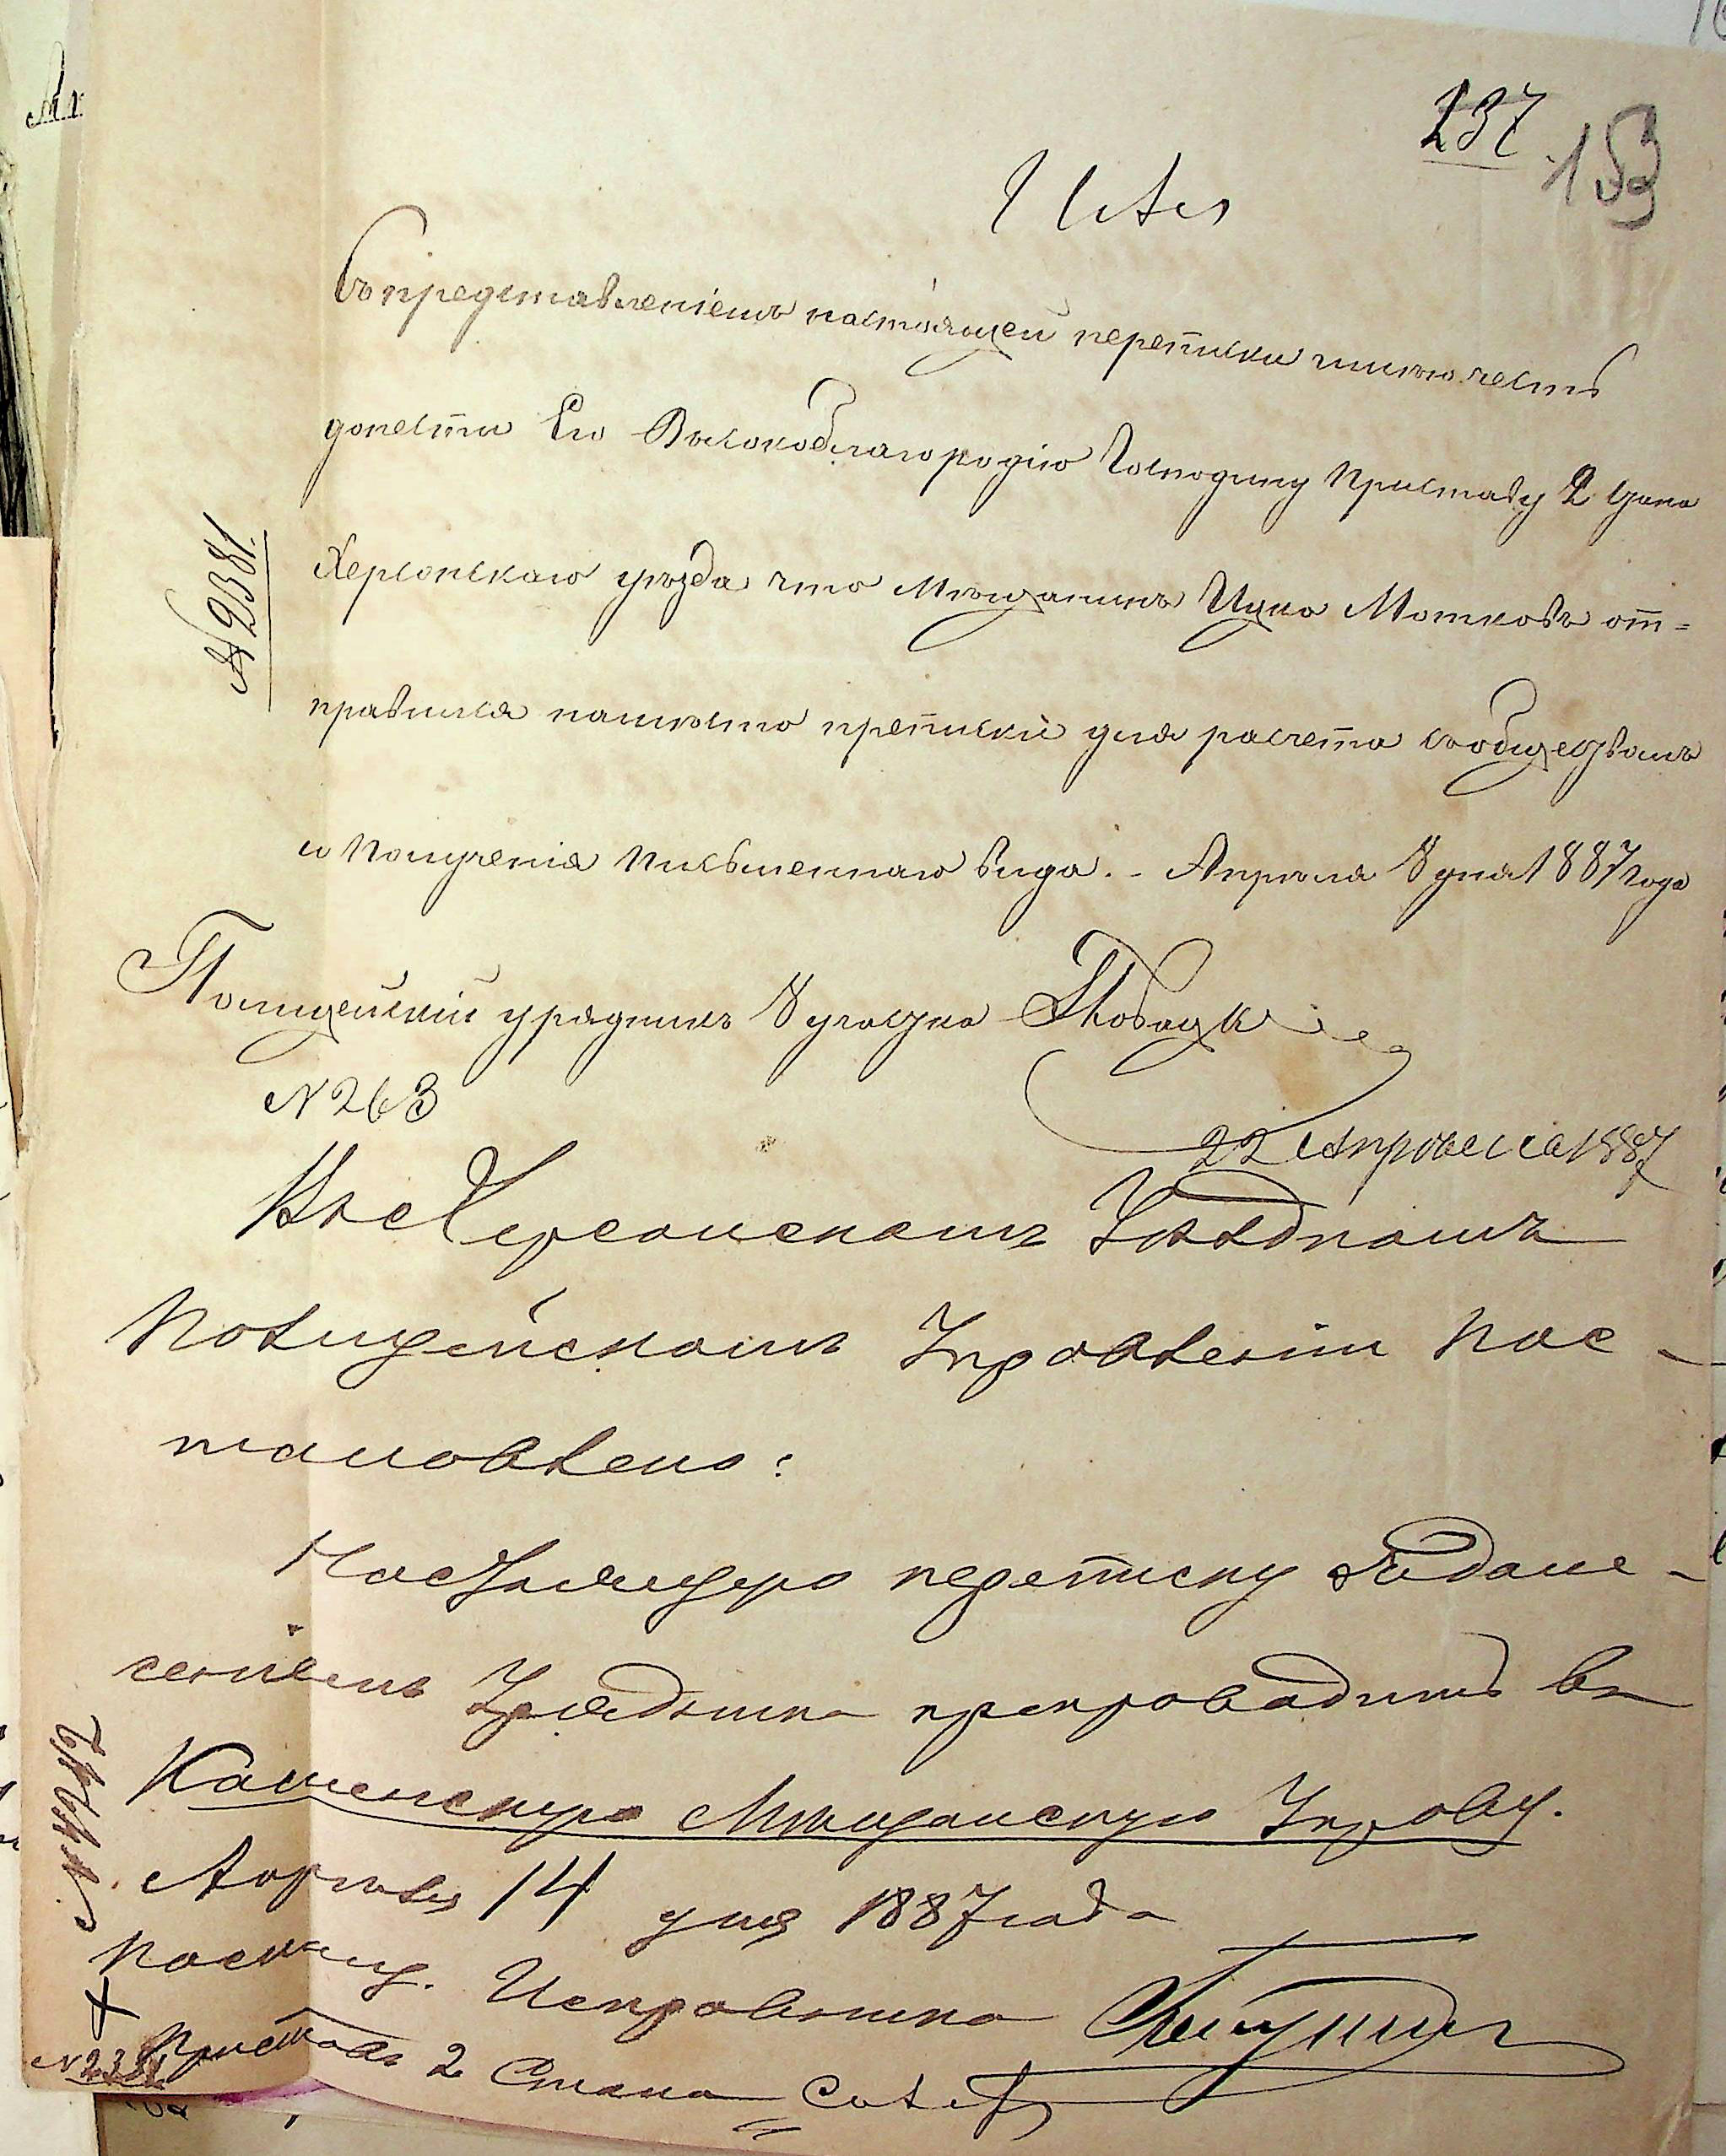 237
153
Съ представленіемъ настоящей переписки имѣю честь
донести Его Высокоблагородію Господину Приставу 2 Стана
№ 2381.
Херсонскаго уѣзда что Мѣщанинъ Ицко Мотковъ от=
правился на мѣсто преписки для расчета собществомъ
и Полученія Письменнаго вида. - Апрѣля 8 дня 1887 года
Полицейскій урядникъ 8 участка
N 263
22 Апрѣля 1887
Въ Херсонскомъ Уѣздномъ
Полицейскомъ Управленіи Пос-
тановлено:
Настоящую переписку съ доне-
сеніемъ Урядника препроводить въ
Каменскую Мѣщанскую Управу.
Апрѣля 14 дня 1887 года
Помощ. Исправника
Приставъ 2 Стана
N 2381